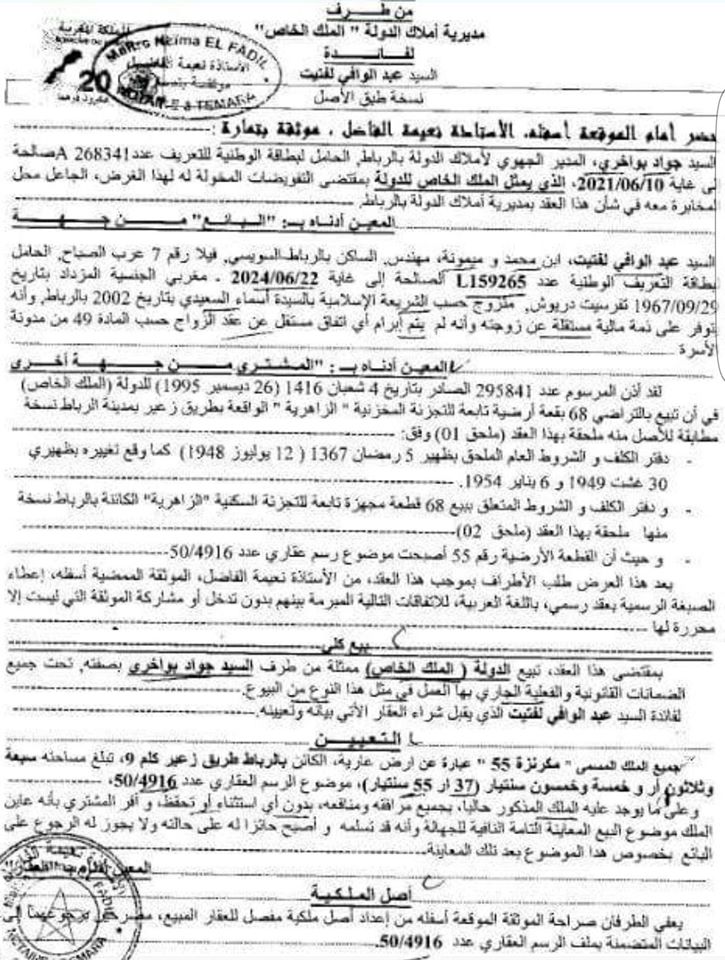 من طرف
مديرية أملاك الدولة "الملك الخاص"
لفائدة
السيد عبد الوافي لفتيت
نسخة طبق الأصل
المملكة المغربية
Maître Naima EL FADIL
الأستاذة نعيمة الفاضل
موثقة بتمارة
NOTAIRE à TEMARA
20
حضر أمام الموقعة أسفله، الأستاذة نعيمة الفاضل، موثقة بتمارة:
السيد جواد بواخري، المدير الجهوي لأملاك الدولة بالرباط، الحامل لبطاقة الوطنية للتعريف عدد A 268341 صالحة
إلى غاية 2021/06/10، الذي يمثل الملك الخاص للدولة بمقتضى التفويضات المخولة له لهذا الغرض، الجاعل محل
المخابرة معه في شأن هذا العقد بمديرية أملاك الدولة بالرباط.
المعين أدناه بـ: "البائع" من جهة
السيد عبد الوافي لفتيت، ابن محمد و ميمونة، مهندس، الساكن بالرباط-السويسي، فيلا رقم 7 عرب الصباح، الحامل
لبطاقة التعريف الوطنية عدد L159265 الصالحة إلى غاية 2024/06/22. مغربي الجنسية المزداد بتاريخ
1967/09/29 تفرسيت دريوش، متزوج حسب الشريعة الإسلامية بالسيدة أسماء السعيدي بتاريخ 2002 بالرباط، وأنه
يتوفر على ذمة مالية مستقلة عن زوجته وأنه لم يتم إبرام أي اتفاق مستقل عن عقد الزواج حسب المادة 49 من مدونة
الأسرة
المعين أدناه بـ: "المشتري من جهة أخرى
لقد أذن المرسوم عدد 295841 الصادر بتاريخ 4 شعبان 1416 (26 ديسمبر 1995) للدولة (الملك الخاص)
في أن تبيع بالتراضي 68 بقعة أرضية تابعة للتجزئة المخزنية "الزاهرية" الواقعة بطريق زعير بمدينة الرباط نسخة
مطابقة للأصل منه ملحقة بهذا العقد (ملحق 01) وفق:
- دفتر الكلف و الشروط العام الملحق بظهير 5 رمضان 1367 (12 يوليوز 1948) كما وقع تغييره بظهيري
30 غشت 1949 و 6 يناير 1954.
- و دفتر الكلف و الشروط المتعلق ببيع 68 قطعة مجهزة تابعة للتجزئة السكنية "الزاهرية" الكائنة بالرباط نسخة
منها ملحقة بهذا العقد (ملحق 02)
- و حيث أن القطعة الأرضية رقم 55 أصبحت موضوع رسم عقاري عدد 50/4916
بعد هذا العرض طلب الأطراف بموجب هذا العقد، من الأستاذة نعيمة الفاضل، الموثقة الممضية أسفله، إعطاء
الصبغة الرسمية بعقد رسمي، باللغة العربية، للاتفاقات التالية المبرمة بينهم بدون تدخل أو مشاركة الموثقة التي ليست إلا
محررة لها
بيع كلي
بمقتضى هذا العقد، تبيع الدولة (الملك الخاص) ممثلة من طرف السيد جواد بواخري بصفته، تحت جميع
الضمانات القانونية والفعلية الجاري بها العمل في مثل هذا النوع من البيوع.
لفائدة السيد عبد الوافي لفتيت الذي يقبل شراء العقار الآتي بيانه وتعيينه.
التعيين
جميع الملك المسمى "مكرنزة 55" عبارة عن ارض عارية، الكائن بالرباط طريق زعير كلم 9، تبلغ مساحته سبعة
وثلاثون آر و خمسة وخمسون سنتيار (37 ار 55 سنتيار)، موضوع الرسم العقاري عدد 50/4916،
وعلى ما يوجد عليه الملك المذكور حاليا، بجميع مرافقه ومنافعه، بدون أي استثناء أو تحفظ، و أقر المشتري بأنه عاين
الملك موضوع البيع المعاينة التامة النافية للجهالة وأنه قد تسلمه و أصبح حائزا له على حالته ولا يجوز له الرجوع على
البائع بخصوص هذا الموضوع بعد تلك المعاينة.
أصل الملكية
يعفي الطرفان صراحة الموثقة الموقعة أسفله من إعداد أصل ملكية مفصل للعقار المبيع،
البيانات المتضمنة بملف الرسم العقاري عدد 50/4916.